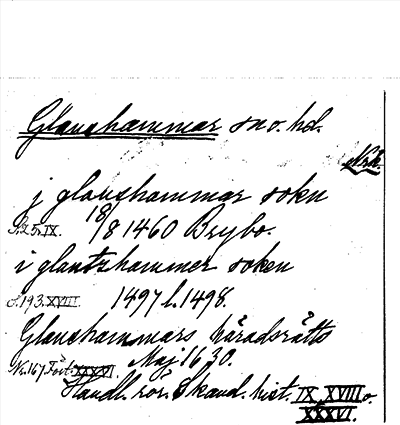 Glanshammar sn o. hd.
Nrk.
j glanshammar sokn
S. 25. IX. 18/8 1460 Brybo.
i glantzhammer soken
S. 193. XVIII. 1497 l. 1498.
Glanshammars häradsrätts
No. 167 Fört. XXXVI. Maj 1630.
Handl. rör. Skand. hist. IX, XVIII o.
XXXVI.